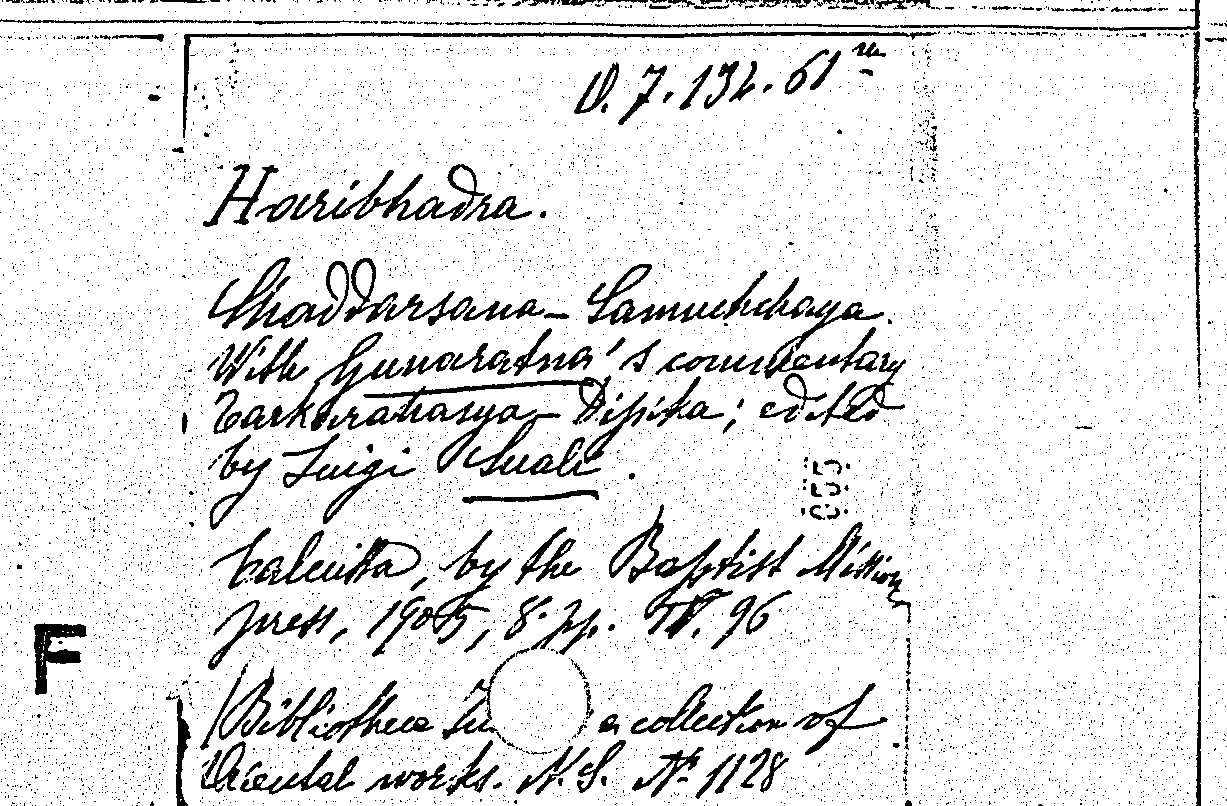 V. 7. 132. 61
Haribhadra.
Shaddarsana-Samuchchaya.
With Gunaratna's commentary
Tarkarahasya-Dipika; edited
by Luigi Suali.
Calcutta, by the Baptist Mission
press, 1905, 8° pp. IV. 96
(Bibliotheca In a collection of
Oriental works. N. S. Nr 1128
F